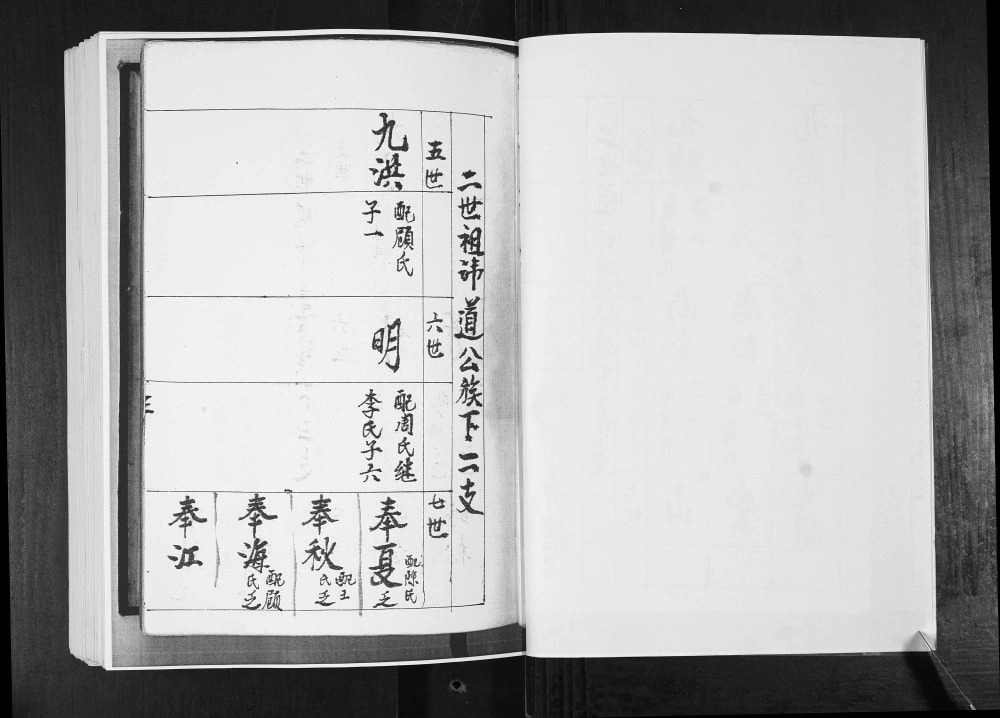 二世祖讳道公族下二支
五世
九洪
配顾氏
子一
六世
明
配周氏继
李氏子六
七世
奉夏
配陈氏
乏
奉秋
配王
氏乏
奉海
配顾
氏乏
奉江